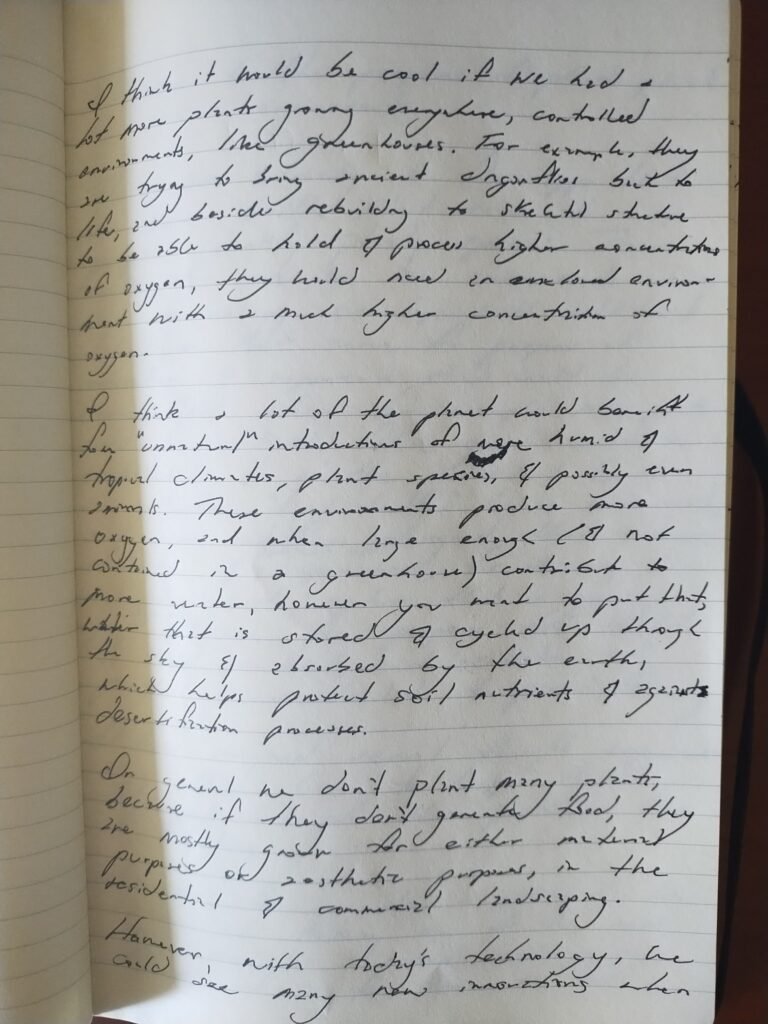 I think it would be cool if we had a
lot more plants growing everywhere, controlled
environments, like greenhouses. For example, they
are trying to bring ancient dragonflies back to
life, and beside rebuilding to skeletal structure
to be able to hold & process higher concentrations
of oxygen, they would need an enclosed environ-
ment with a much higher concentration of
oxygen.
I think a lot of the planet would benefit
from "unnatural" introductions of more humid &
tropical climates, plant species, & possibly even
animals. These environments produce more
oxygen, and when large enough (& not
contained in a greenhouse) contribute to
more water, however you want to put that,
water that is stored & cycled up through
the sky & absorbed by the earth,
which helps protect soil nutrients & against
desertification processes.
In general we don't plant many plants,
because if they don't generate food, they
are mostly grown for either material
purposes or aesthetic purposes, in the
residential & commercial landscaping.
However, with today's technology, we
could see many new innovations when